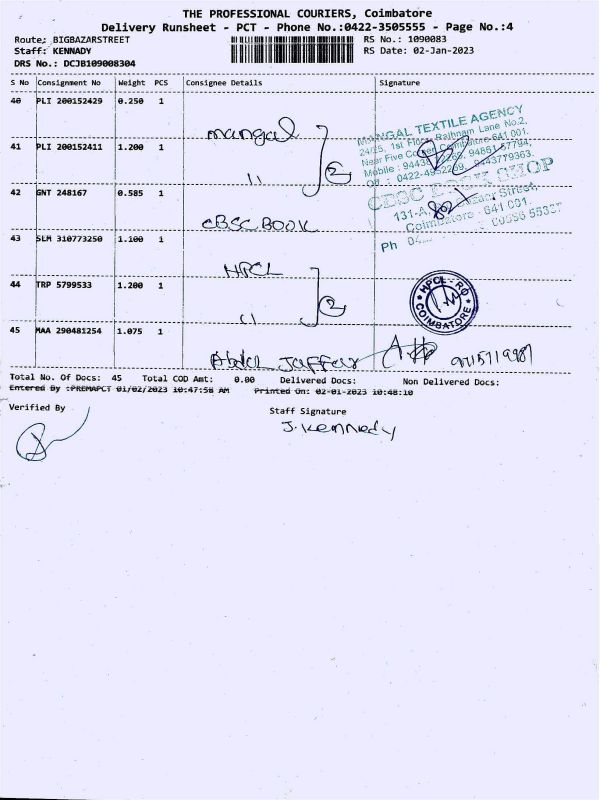 THE PROFESSIONAL COURIERS, Coimbatore
Delivery Runsheet - PCT - Phone No.:0422-3505555 - Page No.:4
Route: BIGBAZARSTREET RS No.: 1090083
Staff: KENNADY RS Date: 02-Jan-2023
DRS No.: DCJB109008304
S No Consignment No Weight PCS Consignee Details Signature
40 PLI 200152429 0.250 1 mangal
MANGAL TEXTILE AGENCY
24/25, 1st Floor, Rathnam Lane No.2,
Near Five Corner, Coimbatore-641 001.
41 PLI 200152411 1.200 1 " 2
42 GNT 248167 0.585 1 CBSC BOOK
CBSC BOOK SHOP
Coimbatore - 641 001.
43 SLM 310773250 1.100 1 HPCL
44 TRP 5799533 1.200 1 " 2
HPCL - RO
COIMBATORE
45 MAA 290481254 1.075 1 Abdul Jaffar
Total No. Of Docs: 45 Total COD Amt: 0.00 Delivered Docs: Non Delivered Docs:
Entered By :PREMAPCT 01/02/2023 10:47:58 AM Printed On: 02-01-2023 10:48:10
Verified By Staff Signature
J. Kennedy